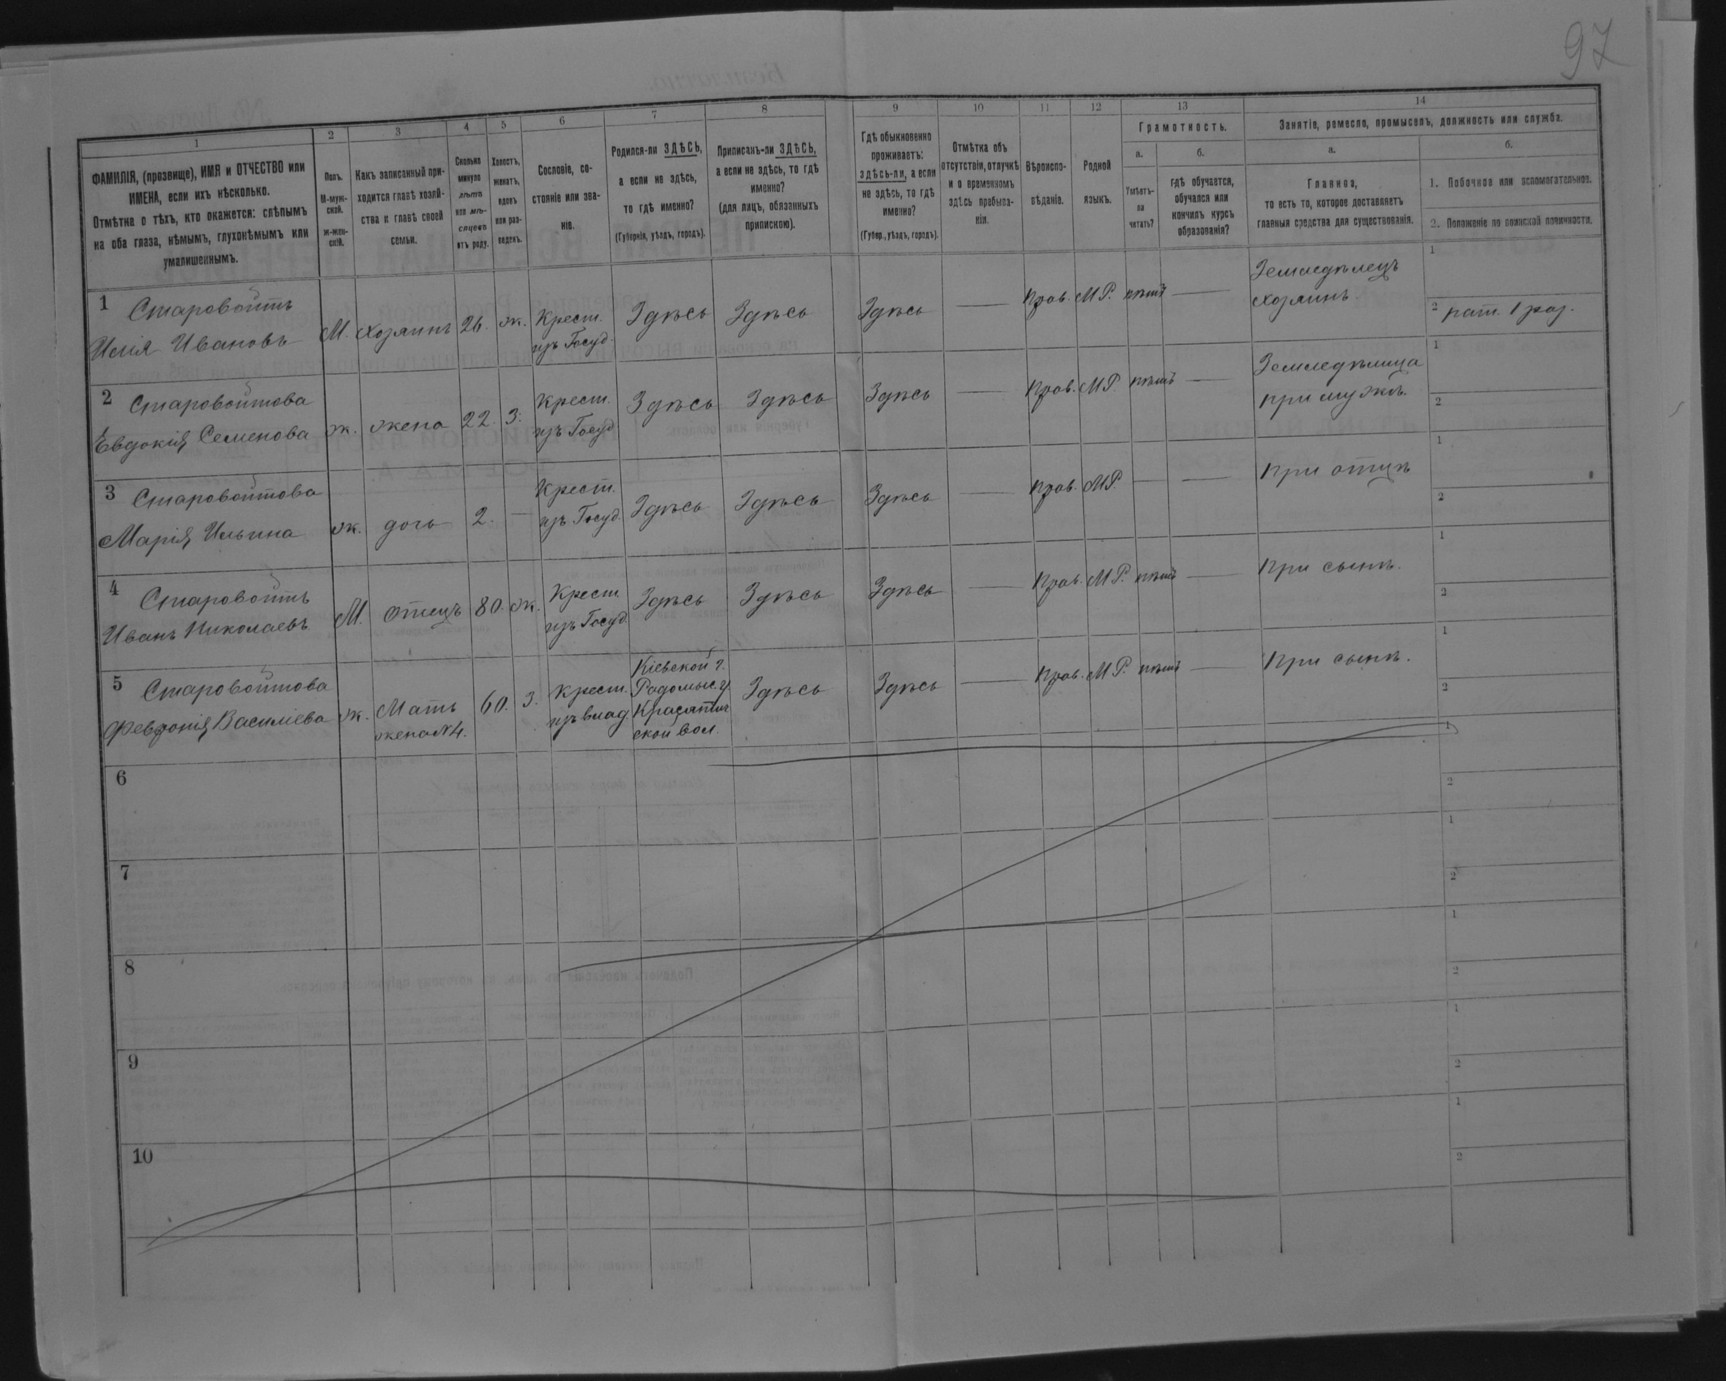 97
1
2
3
4
5
6
7
8
9
10
11
12
13
14
ФАМИЛІЯ, (прозвище), ИМЯ и ОТЧЕСТВО или
ИМЕНА, если ихъ нѣсколько.
Отмѣтка о тѣхъ, кто окажется: слѣпымъ
на оба глаза, нѣмымъ, глухонѣмымъ или
умалишеннымъ.
Полъ.
М-муж-
ской.
Ж-жен-
скій.
Какъ записанный при-
ходится главѣ хозяй-
ства и главѣ своей
семьи.
Сколько
минуло
лѣтъ
или мѣ-
сяцевъ
отъ роду.
Холостъ,
женатъ,
вдовъ
или раз-
веденъ.
Сословіе, со-
стояніе или зва-
ніе.
Родился-ли ЗДѢСЬ,
а если не здѣсь,
то гдѣ именно?
(Губернія, уѣздъ, городъ).
Приписанъ-ли ЗДѢСЬ,
а если не здѣсь, то гдѣ
именно?
(для лицъ, обязанныхъ
припискою).
Гдѣ обыкновенно
проживаетъ:
здѣсь-ли, а если
не здѣсь, то гдѣ
именно?
(Губер., уѣздъ, городъ).
Отмѣтка объ
отсутствіи, отлучкѣ
и о временномъ
здѣсь пребыва-
ніи.
Вѣроиспо-
вѣданіе.
Родной
языкъ.
Грамотность.
а.
Умѣетъ-
ли
читать?
б.
гдѣ обучается,
обучался или
кончилъ курсъ
образованія?
Занятіе, ремесло, промыселъ, должность или служба.
а.
Главное,
то есть то, которое доставляетъ
главныя средства для существованія.
б.
1. Побочное или вспомогательное.
2. Положеніе по воинской повинности.
1 Старовойтъ
Илія Ивановъ
М. хозяинъ 26. ж. Крест.
изъ Госуд.
Здѣсь Здѣсь Здѣсь — Прав. МР. нѣтъ —
Земледѣлецъ
хозяинъ
1
2 рат. 1 раз.
2 Старовойтова
Евдокія Семенова
ж. жена 22. З. Крест.
изъ Госуд
Здѣсь Здѣсь Здѣсь — Прав. МР. нѣтъ —
Земледѣлица
при мужѣ.
1
2
3 Старовойтова
Марія Ильина
ж. дочь 2. — Крест.
изъ Госуд.
Здѣсь Здѣсь Здѣсь — Прав. МР. — —
При отцѣ
1
2
4 Старовойтъ
Иванъ Николаевъ
М. отецъ 80. ж. Крест
изъ Госуд
Здѣсь Здѣсь Здѣсь — Прав. МР. нѣтъ —
При сынѣ.
1
2
5 Старовойтова
Февронія Василіева
ж. Мать
жена №4.
60. З. Крест.
изъ влад.
Кіевской г.
Радомыс. у
Красятич
ской вол.
Здѣсь Здѣсь — Прав. МР. нѣтъ —
При сынѣ.
1
2
6
1
2
7
1
2
8
1
2
9
1
2
10
1
2